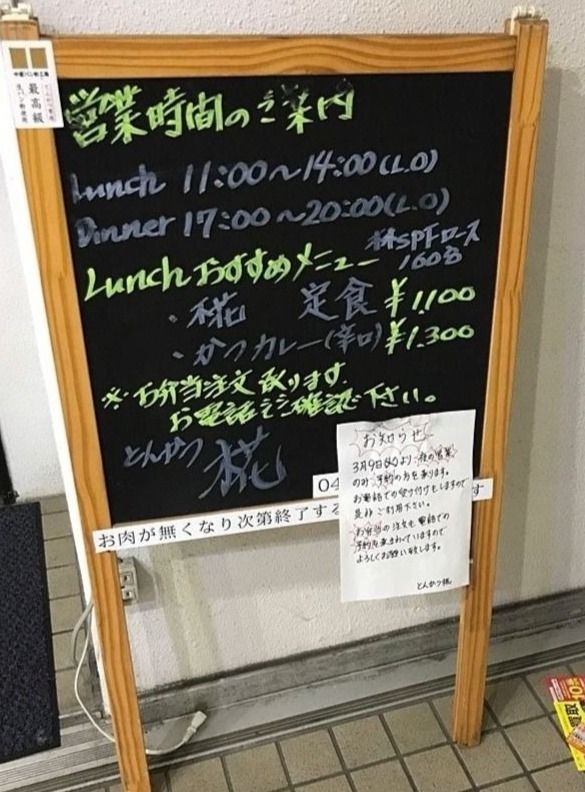 営業時間のご案内
Lunch 11:00～14:00(L.O)
Dinner 17:00～20:00(L.O)
Lunchおすすめメニュー
林SPFロース
160g
・椛 定食 ¥1,100
・かつカレー(辛口) ¥1,300
※お弁当注文承ります。
お電話にてご確認下さい。
とんかつ 椛
04
お肉が無くなり次第終了する
す
お知らせ
3月9日(火)より、夜の営業
のみ 予約のみを承ります。
お電話での受け付けもしますので
是非ご利用下さい。
お弁当の注文も電話での
予約も承っていますので
よろしくお願い致します。
とんかつ椛
中屋パン粉工房
とんかつ専用
最高級
生パン粉使用
買取